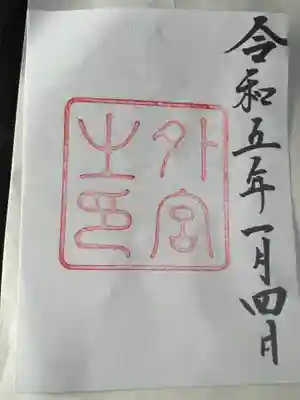 令和五年一月四日
外宮
之印